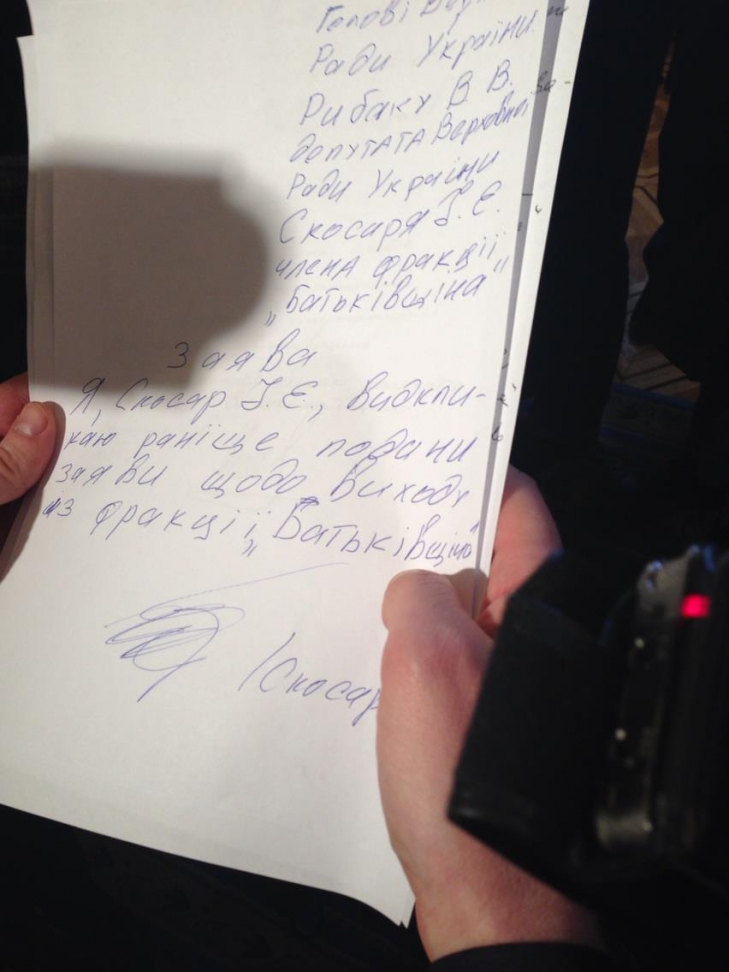 Голові
Ради України
Рибаку В. В.
депутата Верховної
Ради України
Скосаря Ї. Є.
члена фракції
„Батьківщина"
Заява
Я, Скосар Ї. Є., відкли-
каю раніще подани
заяви щодо виходу
із фракції „Батьківщина"
/Скосар